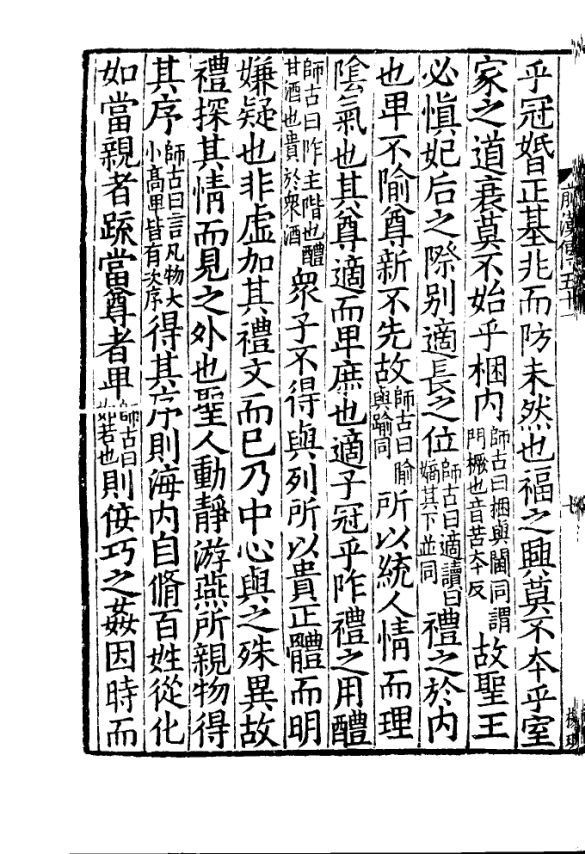 乎冠婚正基兆而防未然也福之興莫不夲乎室
家之道衰莫不始乎梱内師古曰梱與閫同謂門橛也音苦夲反故聖王
必慎妃后之際别適長之位師古曰適讀曰嫡其下並同禮之於内
也卑不隃尊新不先故師古曰隃與踰同所以統人情而理
隂氣也其尊適而卑庶也適子冠乎阼禮之用醴
師古曰阼主階也醴甘酒也貴於衆酒衆子不得與列所以貴正體而明
嫌疑也非虚加其禮文而已乃中心與之殊異故
禮探其情而見之外也聖人動靜游燕所親物得
其序師古曰言凡物大小高卑皆有次序得其序則海内自脩百姓從化
如當親者疏當尊者卑師古曰如若也則佞巧之姦因時而